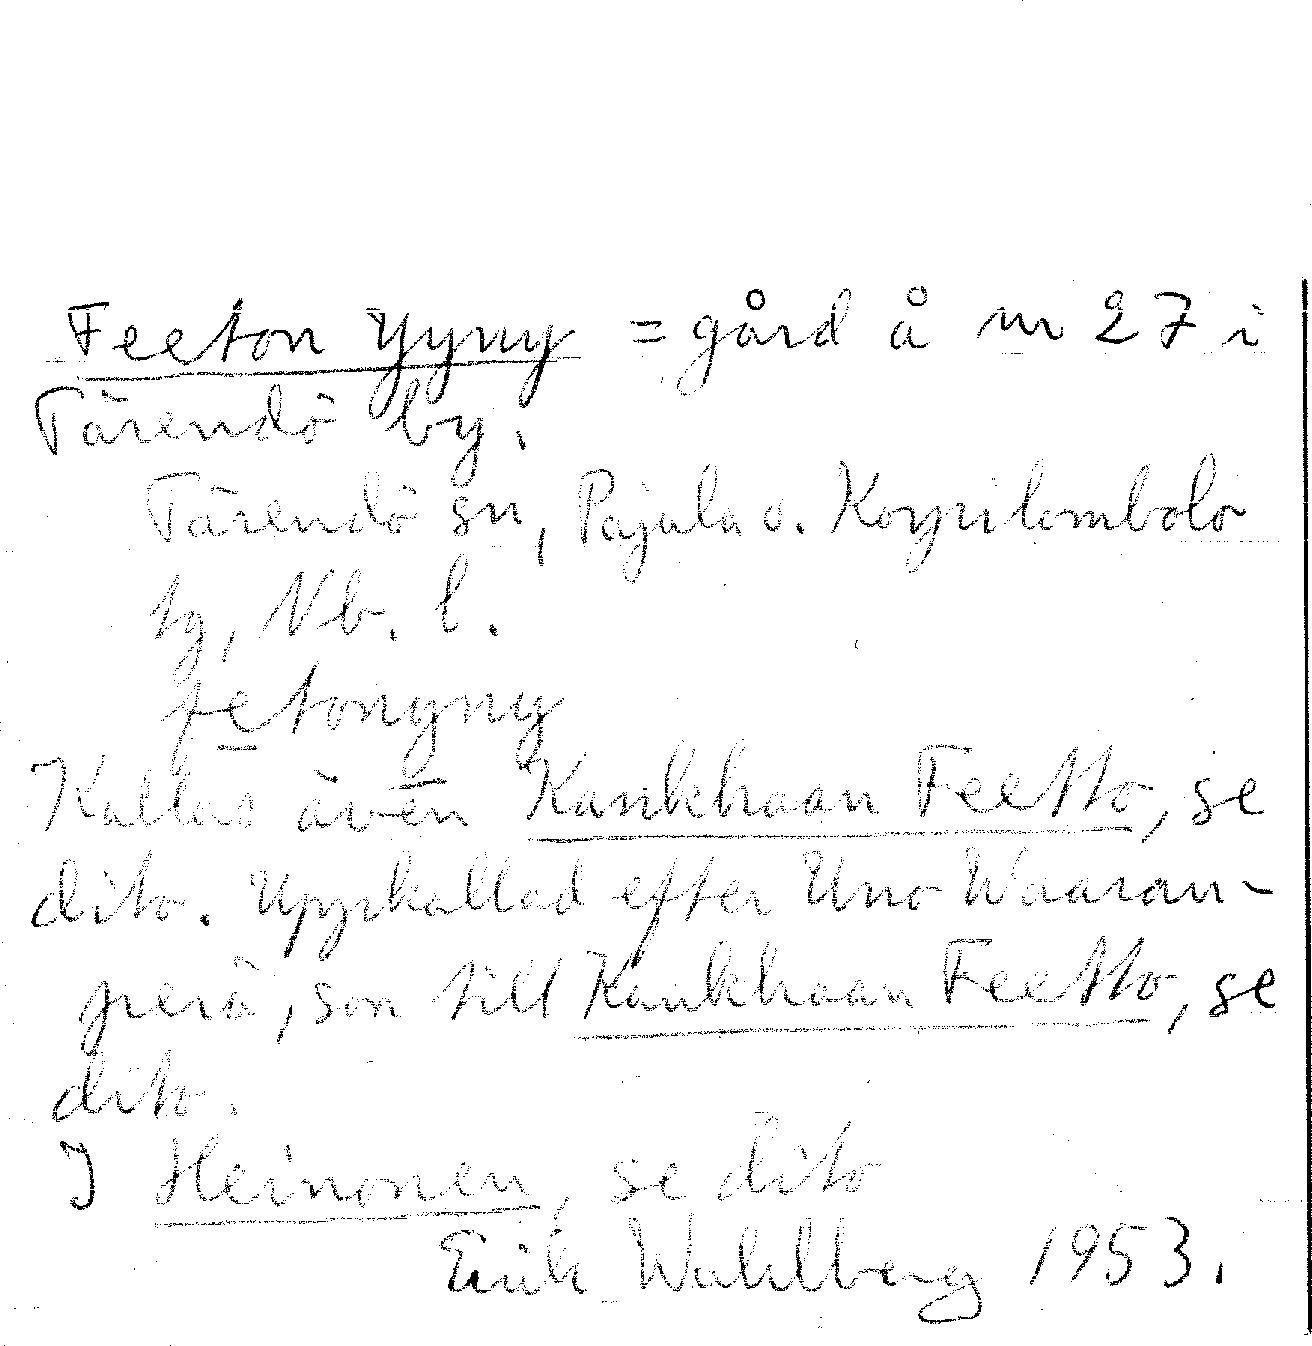 Feeton Yyny = gård å nr 27 i
Tärendö by.
Tärendö sn, Pajala o. Korpilombolo
tg, Nb. l.
fetonyny
Kallas även Kankhaan Feetto, se
dito. Uppkallad efter Uno Waaran-
perä, son till Kankhaan Feetto, se
dito.
I Heinonen, se dito
Erik Wahlberg 1953.